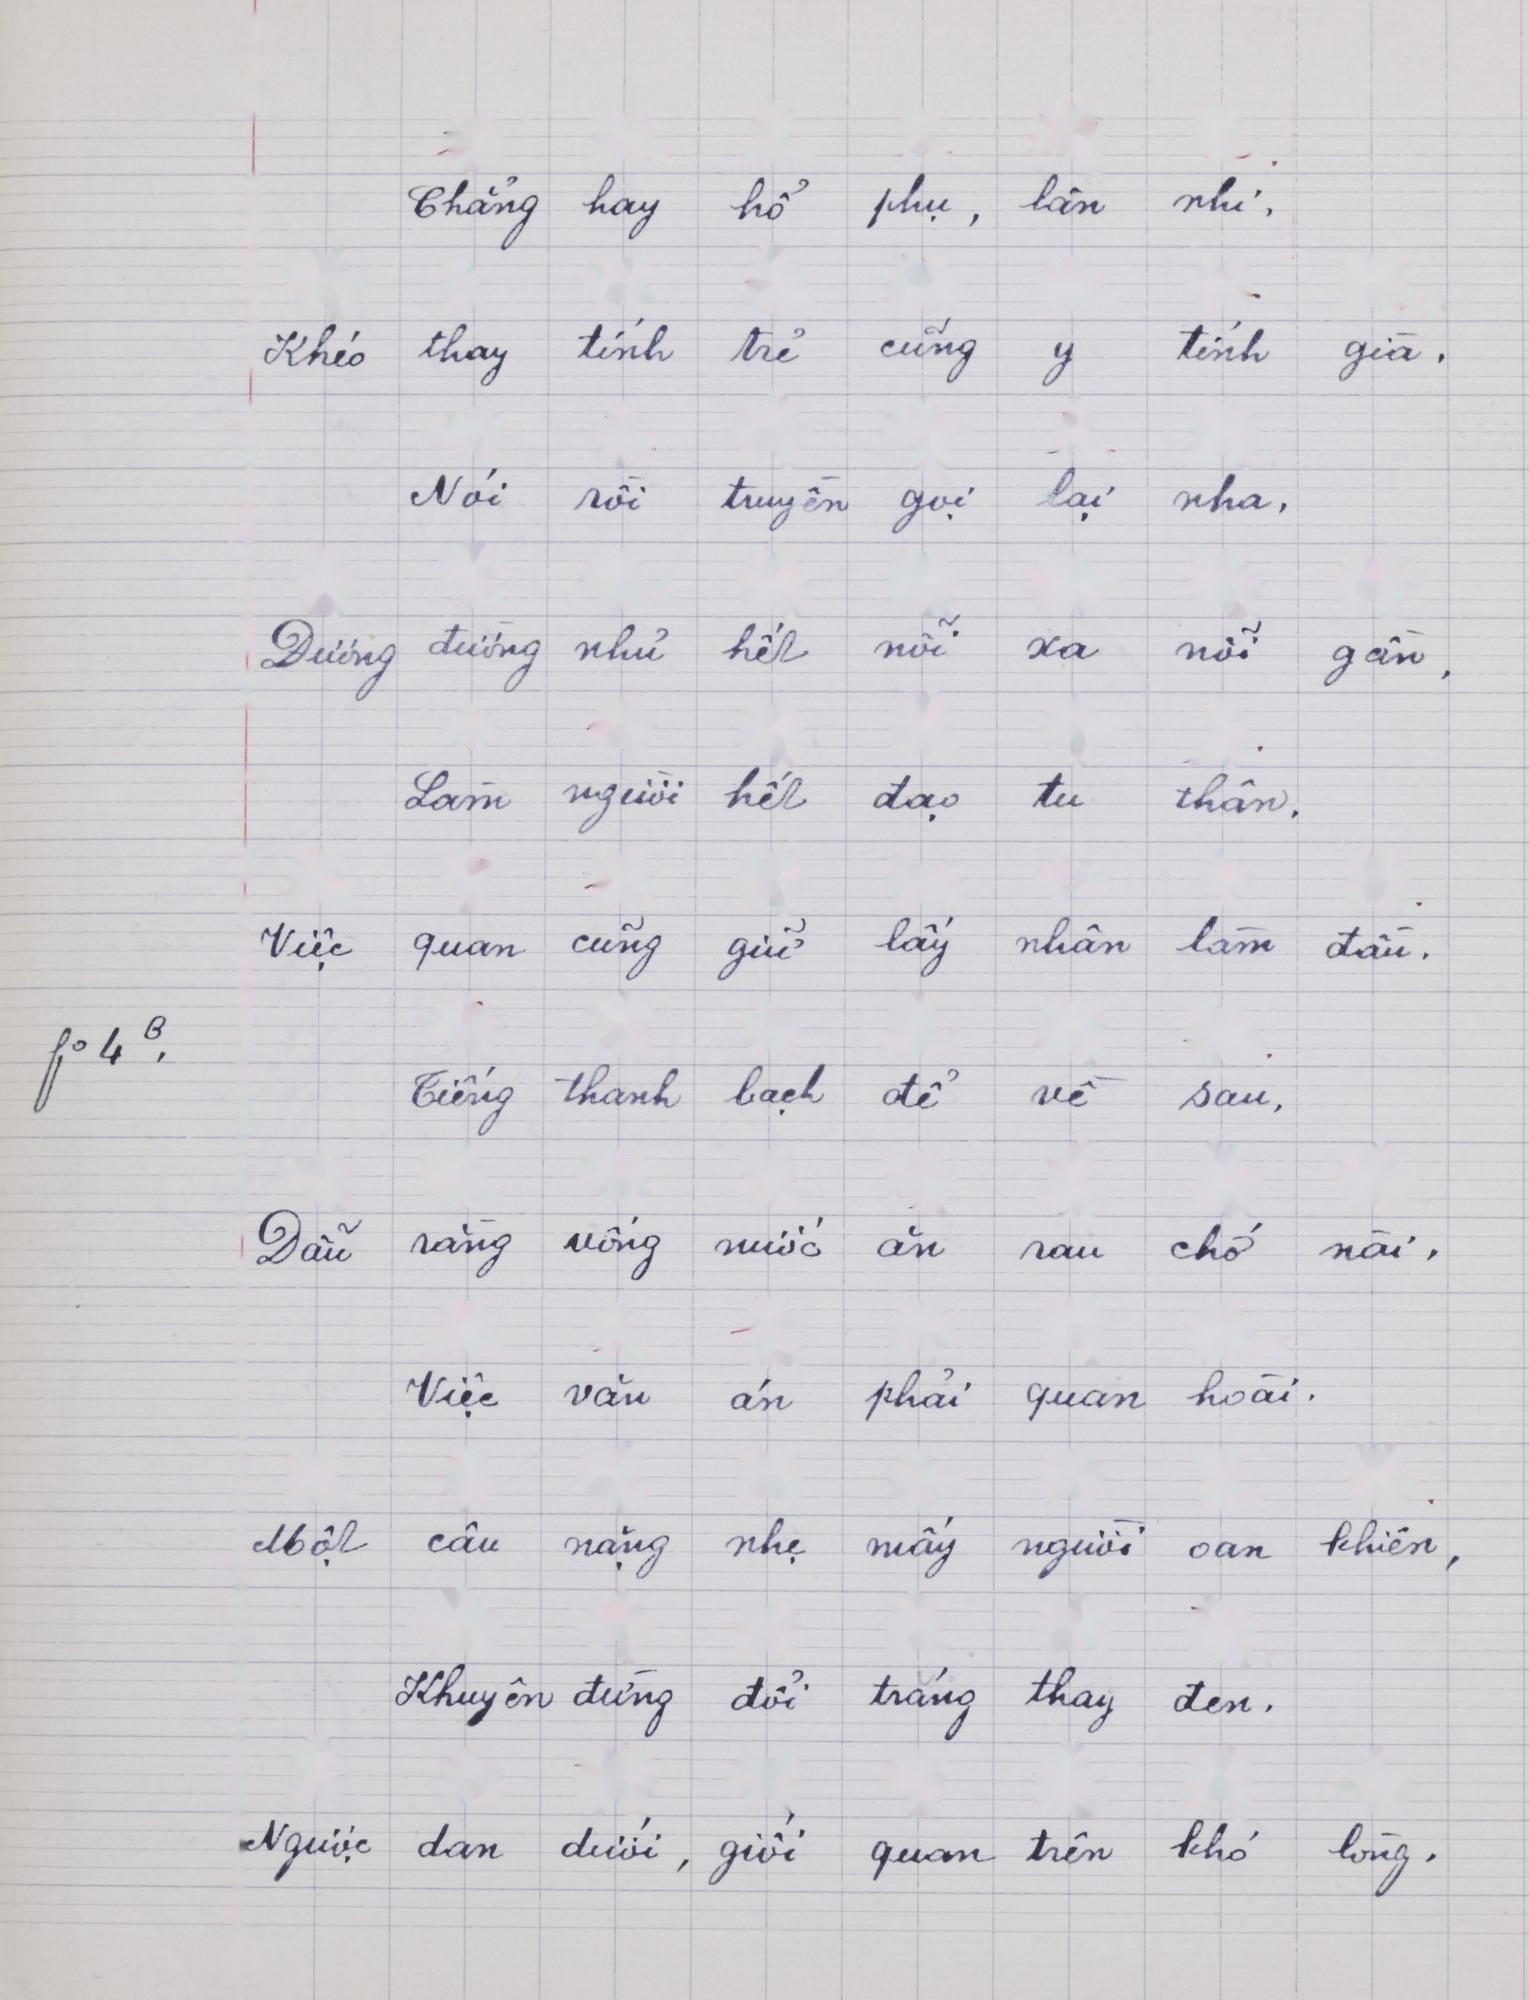 Chẳng hay hổ phụ, lân nhi,
Khéo thay tính trẻ cũng y tính già.
Nói rồi truyền gọi lại nha,
Đường đường nhủ hết nỗi xa nỗi gần,
Làm người hết đạo tu thân,
Việc quan cũng giữ lấy nhân làm đầu.
fº 4 B.
Tiếng thanh bạch để về sau,
Dẫu rằng uống nước ăn rau chớ nài.
Việc văn án phải quan hoài.
Một câu nặng nhẹ mấy người oan khiên,
Khuyên đừng đổi trắng thay đen.
Ngược dan dưới, giối quan trên khó lòng.